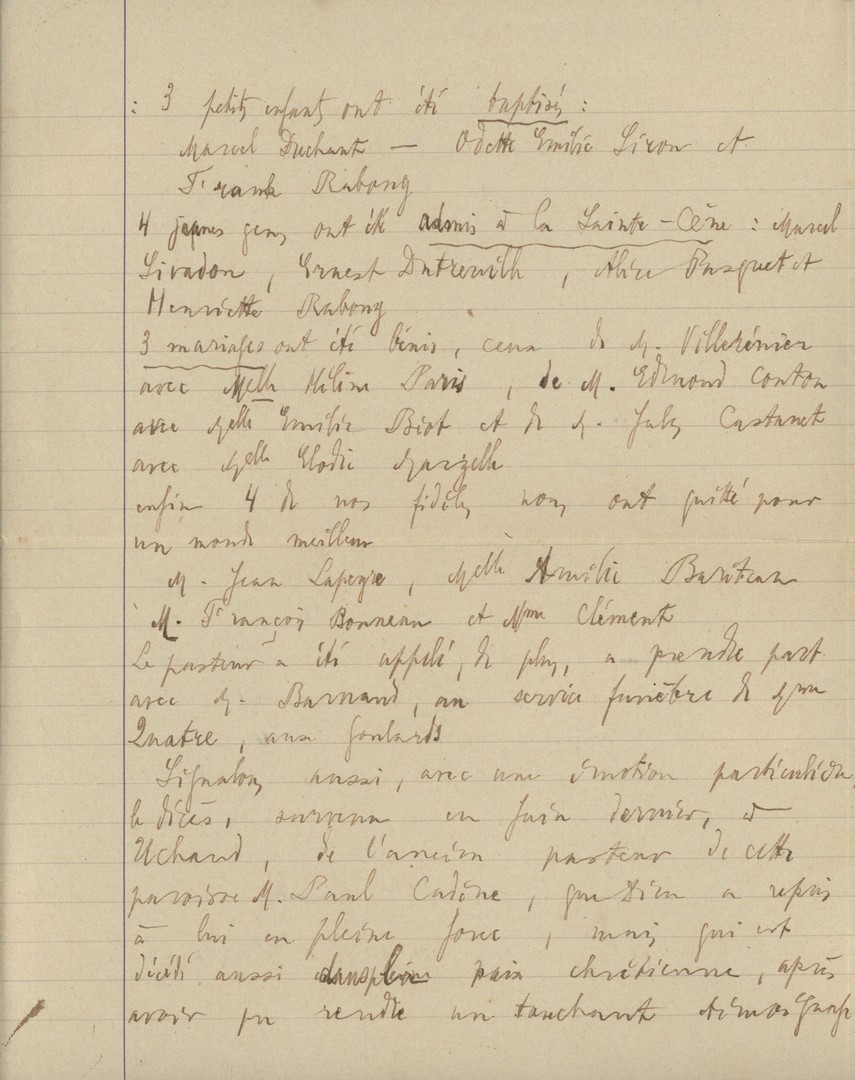 : 3 petits enfants ont été baptisés :
Marcel Duchant — Odette Emilie Liron et
Frank Rabong
4 jeunes gens ont été admis à la Sainte-Cène : Marcel
Livadon, Ernest Dutreuilh, Alice Pasquet et
Henriette Rabong
3 mariages ont été bénis, ceux de M. Villerénier
avec Melle Héline Paris, de M. Edmond Conton
avec Melle Emilie Biot et de M. Jules Castanet
avec Melle Elodie Marzelle
enfin 4 de nos fidèles nous ont quitté pour
un monde meilleur
M. Jean Lapeyre, Melle Amélie Bariteau
M. François Bonneau et Mme Clément
Le pasteur a été appelé, de plus, a prendre part
avec M. Barnaud, au service funèbre de Mme
Quatre, aux Goulards
Signalons aussi, avec une émotion particulière,
le décès, survenu en Juin dernier, à
Uchaud, de l'ancien pasteur de cette
paroisse M. Paul Cadène, que Dieu a repris
à lui en pleine force, mais qui est
décédé aussi dans pleine paix chrétienne, après
avoir pu rendre un touchant témoignage